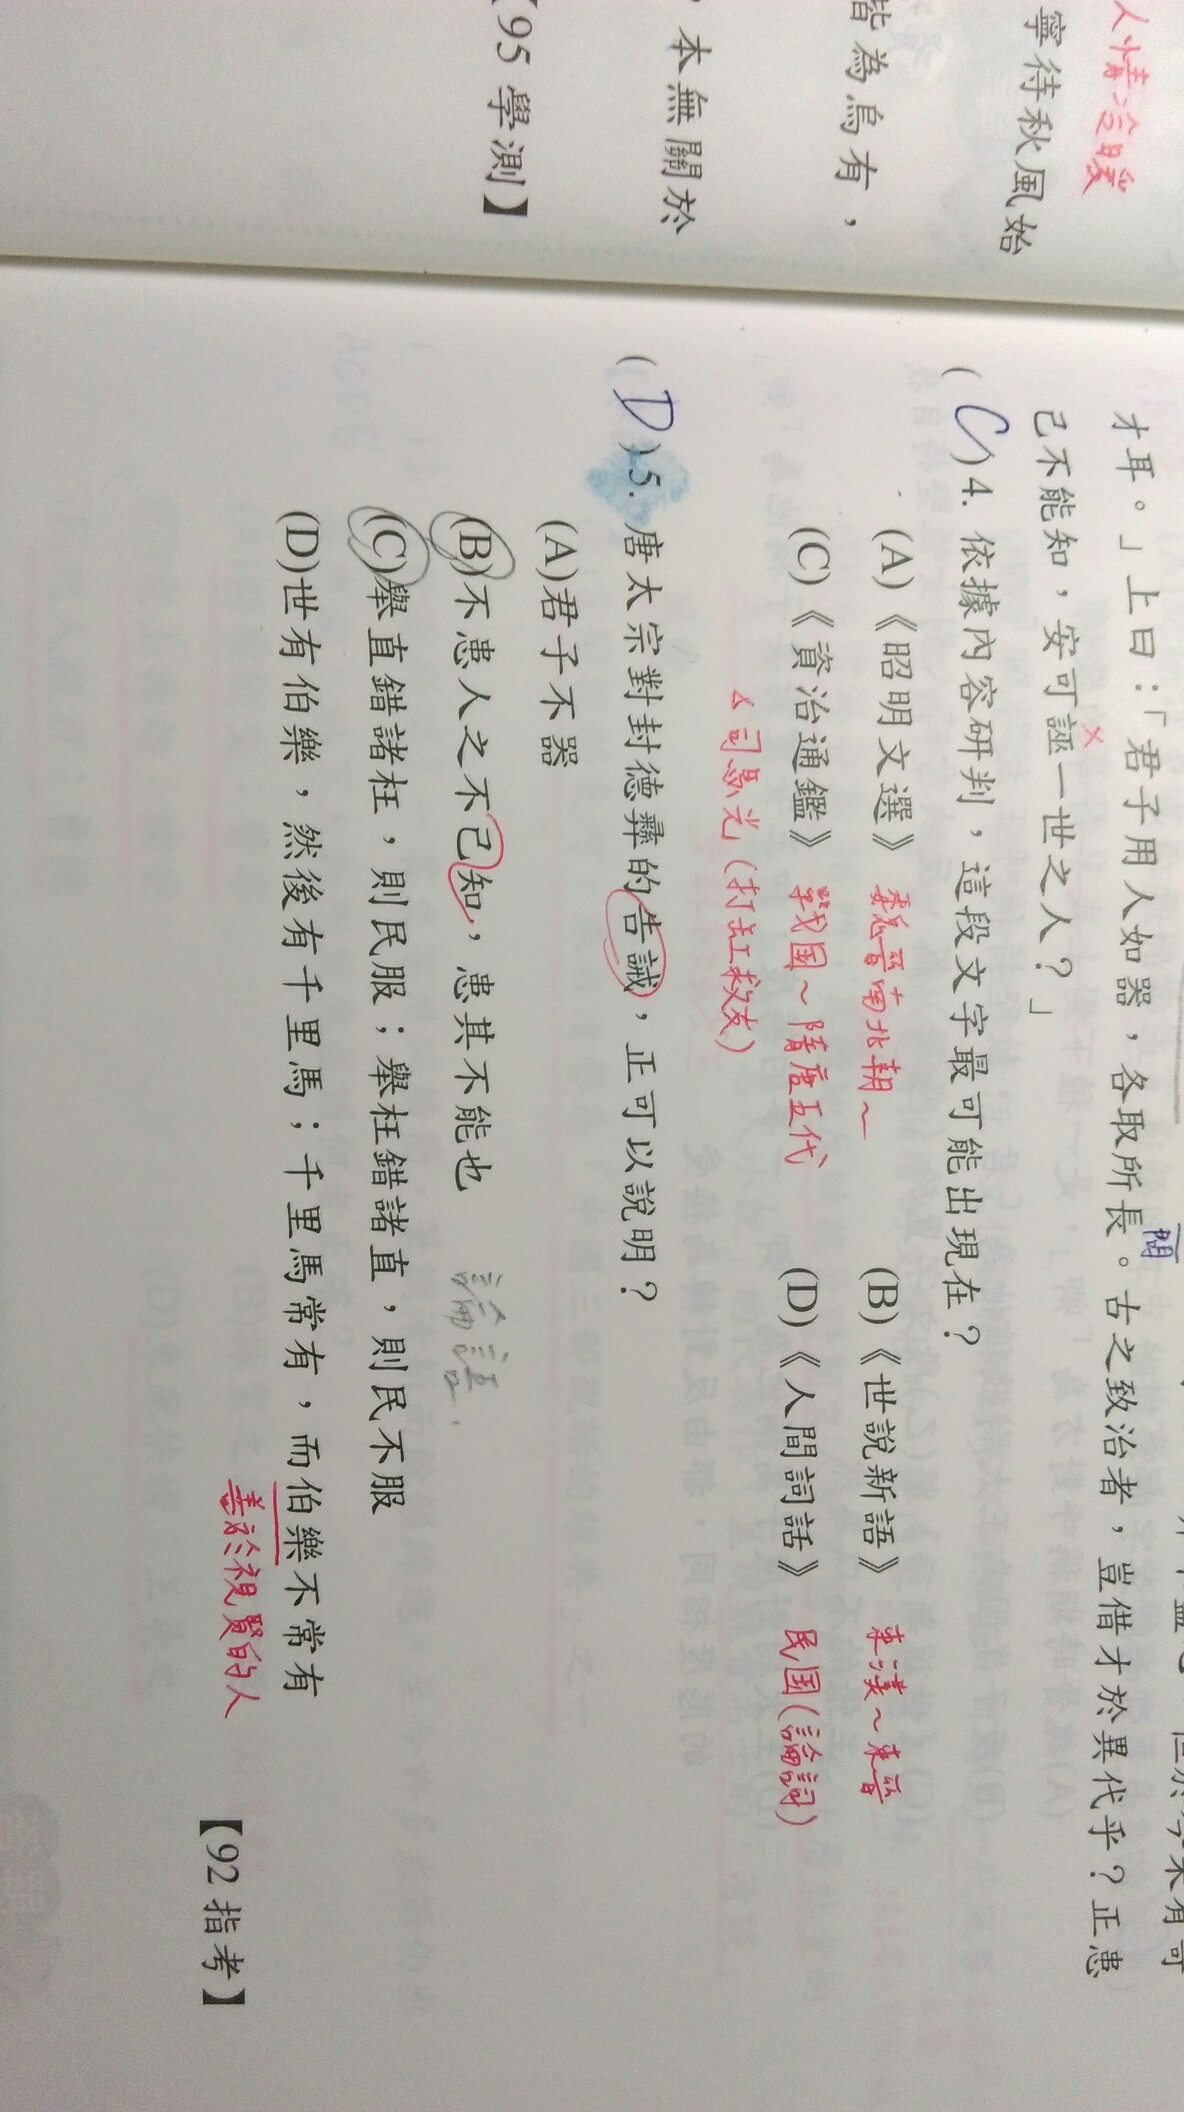 人情冷暖
寧待秋風始
皆為烏有，
，本無關於
【95 學測】
但於今未有可
才耳。」上曰：「君子用人如器，各取所長。古之致治者，豈借才於異代乎？正患
己不能知，安可誣一世之人？」
(C)4. 依據內容研判，這段文字最可能出現在？
(A)《昭明文選》 魏晉南北朝～ (B)《世說新語》 東漢～東晉
(C)《資治通鑑》 戰国～隋唐五代 (D)《人間詞話》 民国(論詞)
司馬光(打缸救友)
(D)5. 唐太宗對封德彝的告誡，正可以說明？
(A)君子不器
(B)不患人之不己知，患其不能也 論語
(C)舉直錯諸枉，則民服；舉枉錯諸直，則民不服
(D)世有伯樂，然後有千里馬；千里馬常有，而伯樂不常有
善於視賢的人
【92 指考】